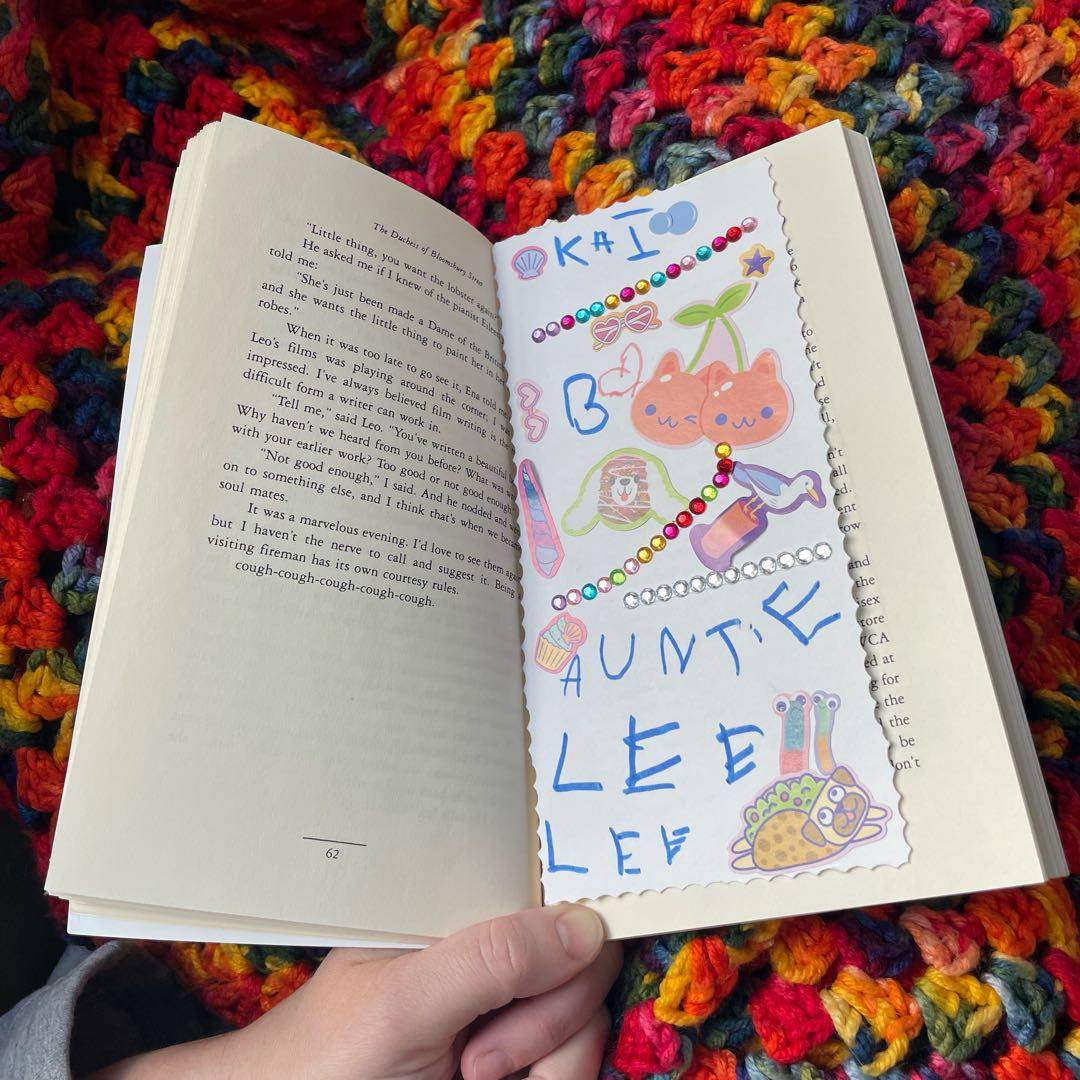 The Duchess of Bloomsbury Street
"Little thing, you want the lobster again."
He asked me if I knew of the pianist Eileen
told me:
"She's just been made a Dame of the British
and she wants the little thing to paint her in her
robes."
When it was too late to go see it, Ena told me
Leo's films was playing around the corner; I was
impressed. I've always believed film writing is the
difficult form a writer can work in.
"Tell me," said Leo. "You've written a beautiful
Why haven't we heard from you before? What was
with your earlier work? Too good or not good enough"
"Not good enough," I said. And he nodded and went
on to something else, and I think that's when we became
soul mates.
It was a marvelous evening. I'd love to see them again
but I haven't the nerve to call and suggest it. Being a
visiting fireman has its own courtesy rules.
cough-cough-cough-cough-cough.
62
KAI
B
AUNTIE
LEE
LEE
and
the
at
for
the
the
be